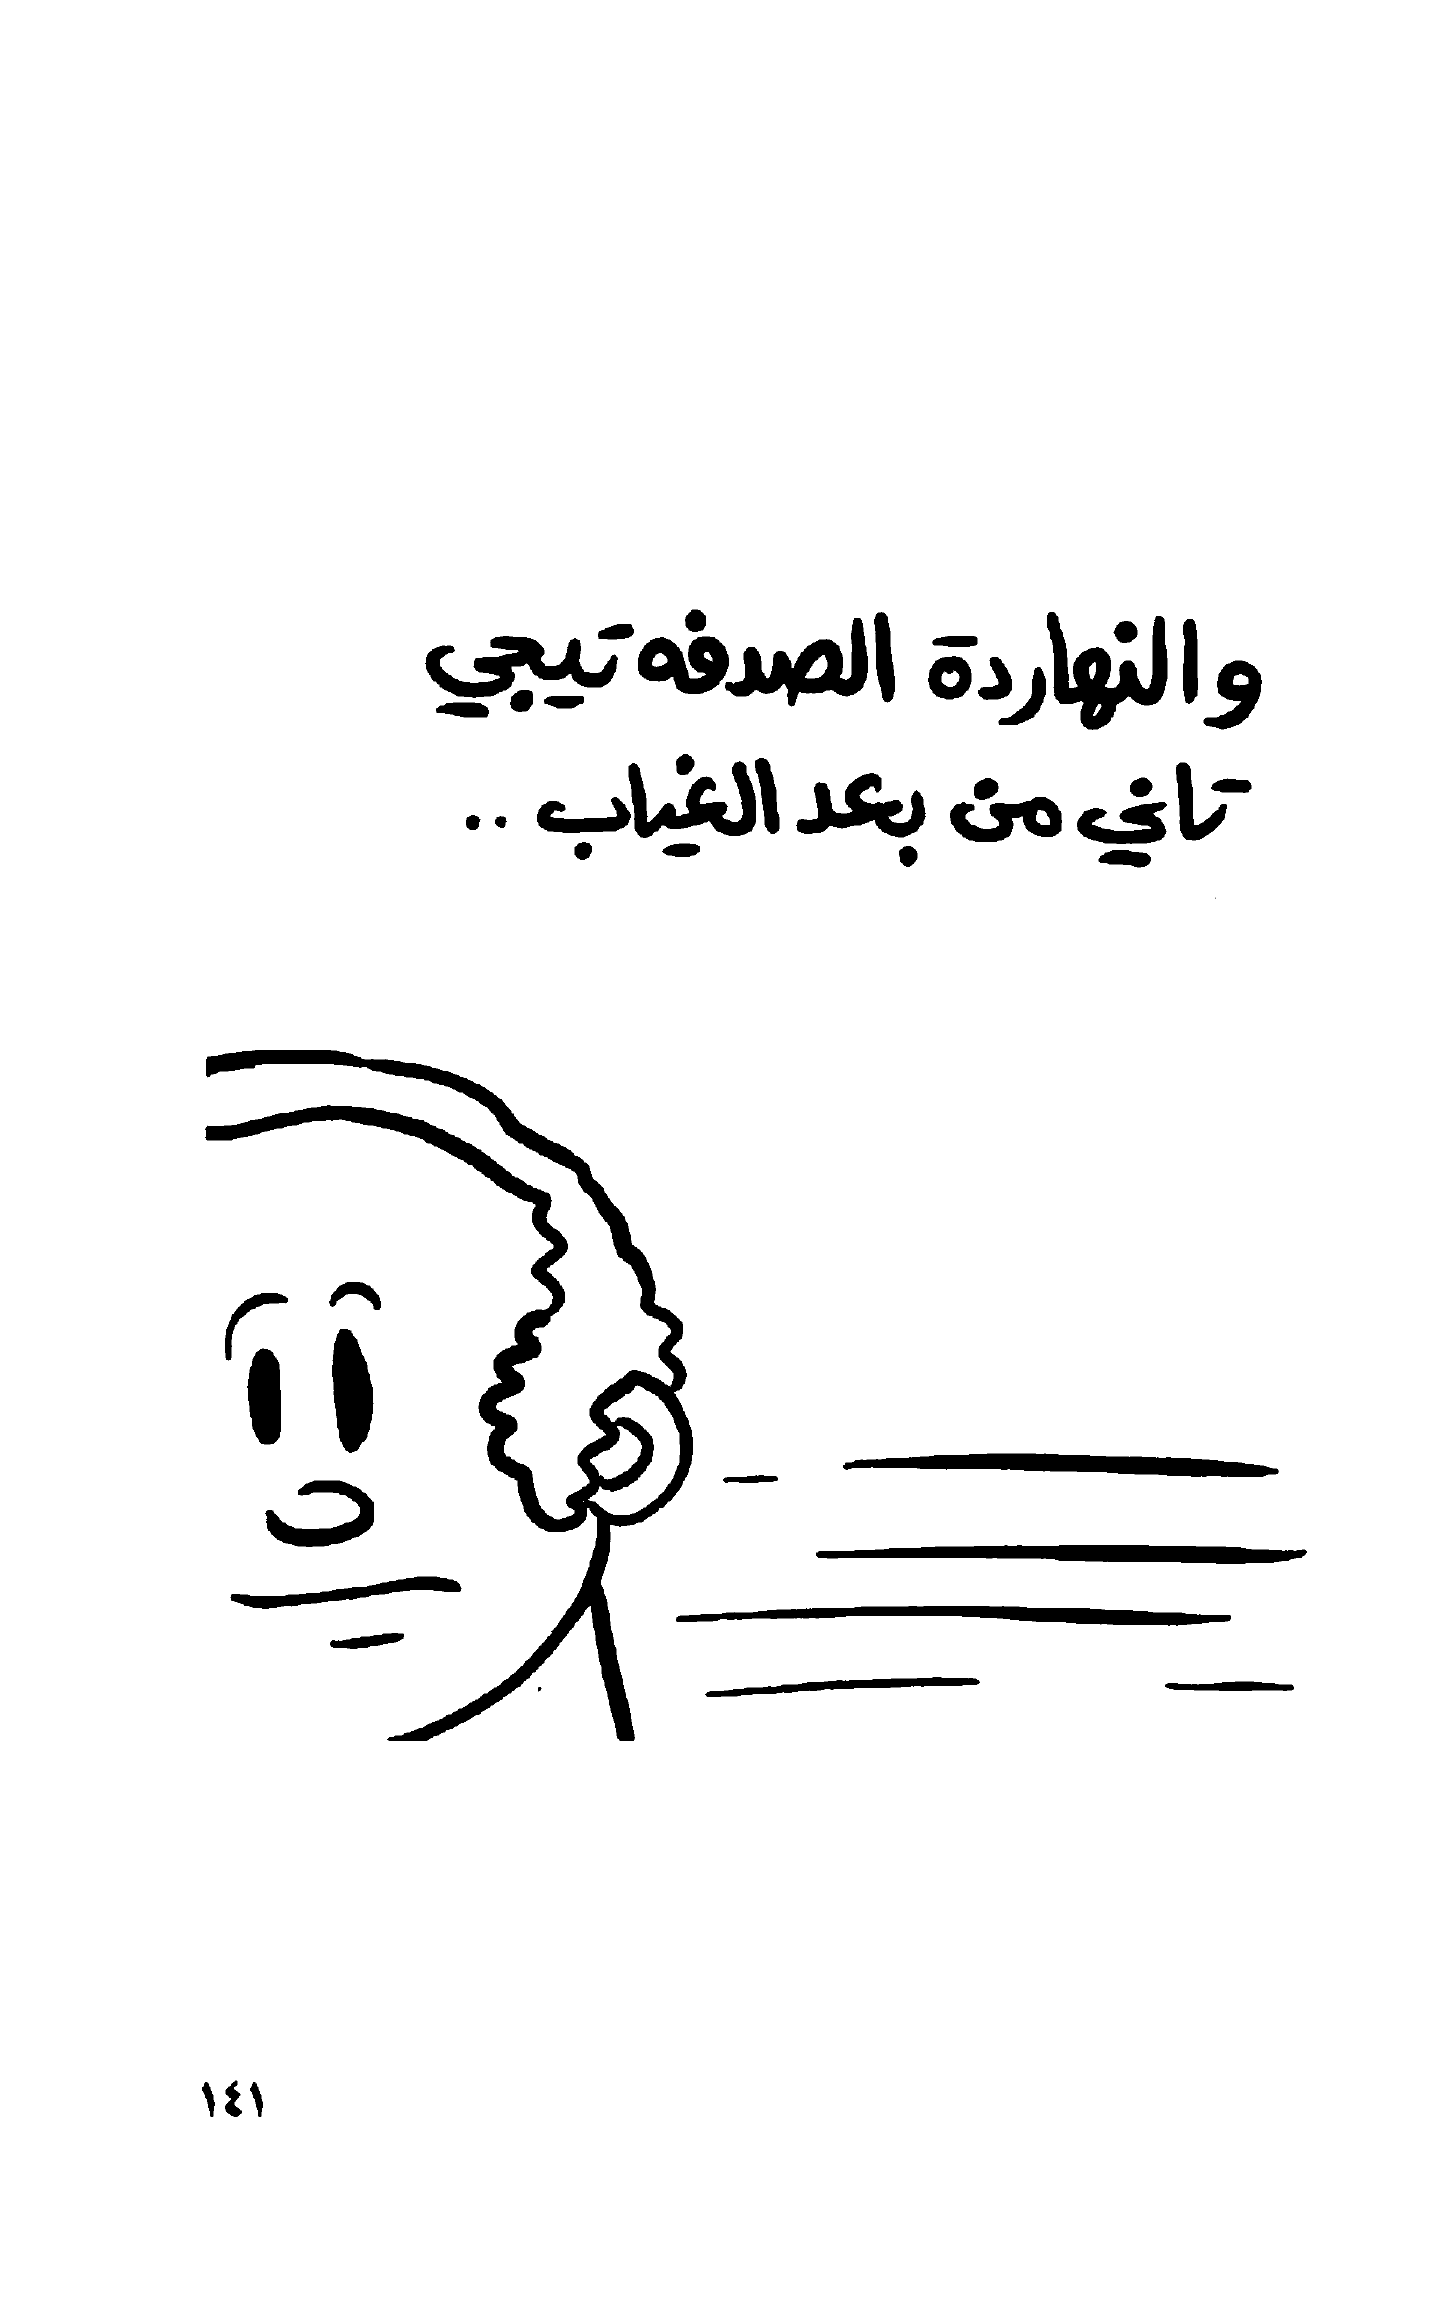 والنهاردة الصدفه تيجي
تاني من بعد الغياب ..
١٤١